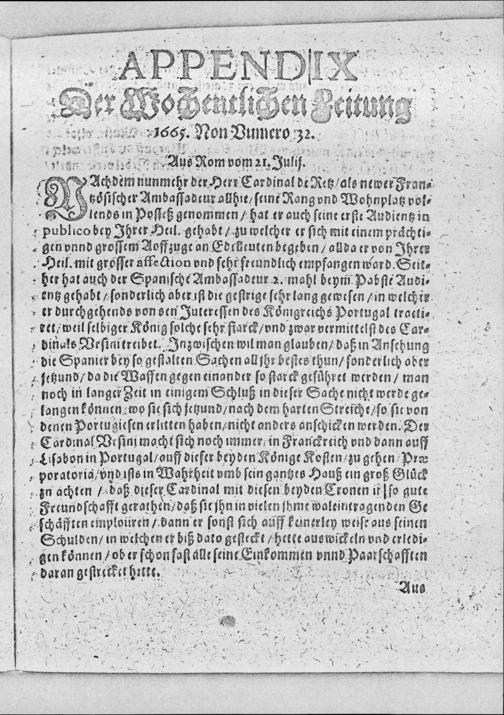 APPENDIX
Der Wochentlichen Zeitung
1665. Non Numero 32.
Aus Rom vom 21. Julij.
NAchdem nunmehr der Herr Cardinal de Retz/als newer Fran-
tzösischer Ambassadeur allhie/seine Rang und Wohnplatz vol-
lends in Posseß genommen/hat er auch seine erste Audientz in
publico bey Ihrer Heil. gehabt/zu welcher er sich mit einem prächti-
gen vnnd grossem Auffzuge an Edelleuten begeben/allda er von Ihrer
Heil. mit grosser affection und sehr freundlich empfangen ward. Seit-
her hat auch der Spanische Ambassadeur 2. mahl beym Pabste Audi-
entz gehabt/sonderlich aber ist die gestrige sehr lang gewesen/in welcher
er durchgehends von den Interessen des Königreichs Portugal tracti-
ret/weil selbiger König solche sehr starck/und zwar vermittelst des Car-
dinals Vrsini treibet. Inzwischen wil man glauben/daß in Ansehung
die Spanier bey so gestalten Sachen all ihr bestes thun/sonderlich aber
jetzund/da die Waffen gegen einander so starck geführet werden/man
noch in langer Zeit in einigem Schluß in dieser Sache nicht werde ge-
langen können/wo sie sich jetzund/nach dem harten Streiche/so sie von
denen Portugiesen erlitten haben/nicht anders anschicken werden. Der
Cardinal Vrsini macht sich noch immer/in Franckreich und dann auff
Lisabon in Portugal/auff dieser beyden Könige Kosten/zu gehen/Præ
poratoria/vnd ists in Wahrheit vmb sein gantzes Hauß ein groß Glück
zu achten/daß dieser Cardinal mit diesen beyden Cronen in so gute
Freundschafft gerathen/daß sie ihn in vielen ihme waleintragenden Ge
schäfften emploiiren/dann er sonst sich auff keinerley weise aus seinen
Schulden/in welchen er biß dato gesteckt/hette auswickeln und erledi-
gen können/ob er schon fast alle seine Einkommen vnnd Paarschafften
daran gestrecket hette.
Aus